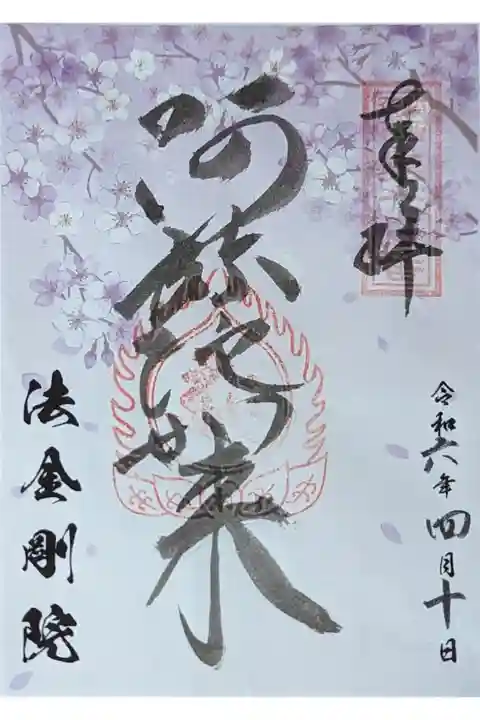 奉拝
令和六年四月十日
阿弥陀如来
法金剛院